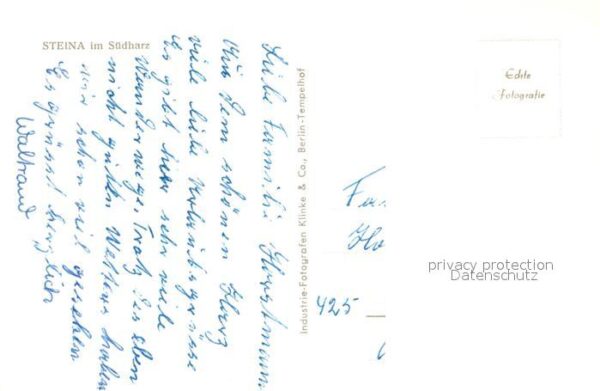 STEINA im Südharz
Liebe Familie Horstmann
Aus dem schönen Harz
viele liebe Urlaubsgrüsse
Es gibt hier sehr viele
Wanderwege. Trotz des eben
nicht guten Wetters haben
wir schon viel gesehen
Es grüsst herzlich
Waltraud
Industrie-Fotografen Klinke & Co., Berlin-Tempelhof
Echte
Fotografie
Fa
Ho
privacy protection
Datenschutz
425